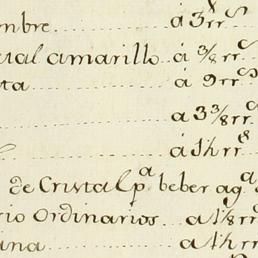 mbre á 3 rr.s
etal amarillo á 3/8 rr.s
ta á 9 rr.s
á 3 3/8 rr.s
á 1 1/2 rr.s
de Cristal p.a beber ag.a
rio Ordinarios a 1 1/8 rr.s
ana a 1 1/2 rr